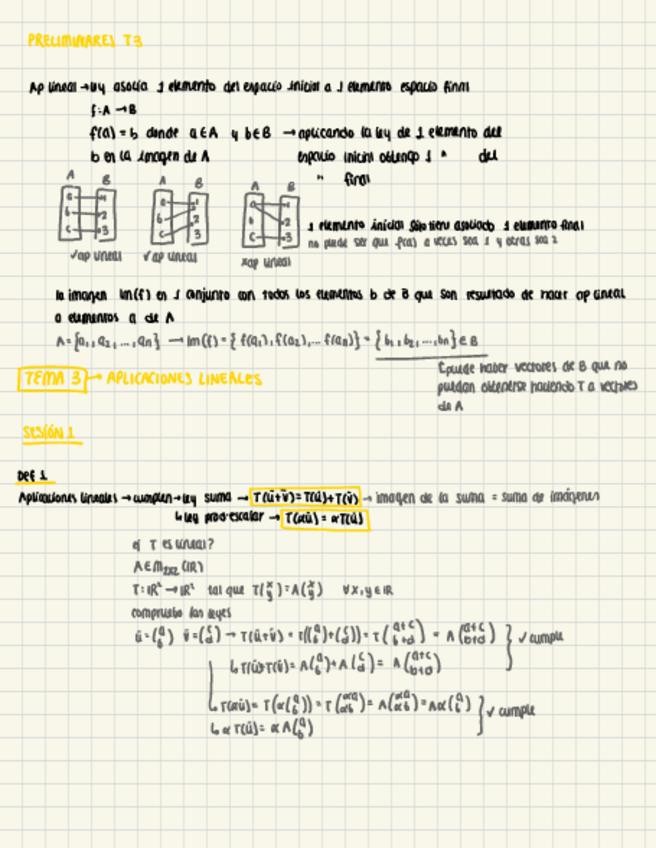 PRELIMINARES T3
Ap lineal → ley asocia 1 elemento del espacio inicial a 1 elemento espacio final
f: A → B
f(a) = b donde a ∈ A y b ∈ B → aplicando la ley de 1 elemento del
b en la imagen de A espacio inicial obtengo 1 " del
" final
A B A B A B
a 1 a 1 a 1
b 2 b 2 b 2
c 3 c 3 c 3
✓ap lineal ✓ap lineal xap lineal
1 elemento inicial sólo tiene asociado 1 elemento final
no puede ser que f(a) a veces sea 1 y otras sea 2
la imagen Im(f) en 1 conjunto con todos los elementos b de B que son resultado de hacer ap lineal
a elementos a de A
A = {a₁, a₂, ..., aₙ} → Im(f) = {f(a₁), f(a₂), ... f(aₙ)} = {b₁, b₂, ..., bₙ} ∈ B
puede haber vectores de B que no
puedan obtenerse haciendo T a vectores
de A
TEMA 3 → APLICACIONES LINEALES
SESIÓN 1
DEF 1
Aplicaciones lineales → cumplen → ley suma → T(ū+v̄) = T(ū)+T(v̄) → imagen de la suma = suma de imágenes
↳ ley prod·escalar → T(αū) = αT(ū)
ej T es lineal?
A ∈ M₂ₓ₂(ℝ)
T: ℝ² → ℝ² tal que T(x y) = A(x y) ∀x,y ∈ ℝ
compruebo las leyes
ū = (a b) v̄ = (c d) → T(ū+v̄) = T((a b)+(c d)) = T(a+c b+d) = A(a+c b+d) } ✓ cumple
↳ T(ū)+T(v̄) = A(a b) + A(c d) = A(a+c b+d)
↳ T(αū) = T(α(a b)) = T(αa αb) = A(αa αb) = Aα(a b) } ✓ cumple
↳ αT(ū) = αA(a b)